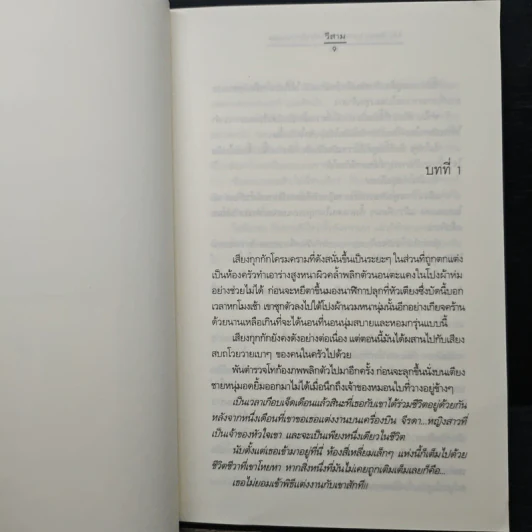 วีสาม
๑
บทที่ 1
เสียงกุกกักโครมครามที่ดังสนั่นขึ้นเป็นระยะๆ ในส่วนที่ถูกตกแต่ง
เป็นห้องครัวทำเอาร่างสูงหนาผิวคล้ำพลิกตัวนอนตะแคงในโปงผ้าห่ม
อย่างช่วยไม่ได้ ก่อนจะหยีตาขึ้นมองนาฬิกาปลุกที่หัวเตียงซึ่งบัดนี้บอก
เวลาหกโมงเช้า เขาซุกตัวลงไปใต้โปงผ้านวมหนานุ่มนั้นอีกอย่างเกียจคร้าน
ด้วยนานเหลือเกินที่จะได้นอนที่นอนนุ่มสบายและหอมกรุ่นแบบนี้
เสียงกุกกักยังคงดังอย่างต่อเนื่อง แต่ตอนนี้มันได้ผสานไปกับเสียง
สบถโวยวายเบาๆ ของคนในครัวไปด้วย
พันตำรวจโทก้องภพพลิกตัวไปมาอีกครั้ง ก่อนจะลุกขึ้นนั่งบนเตียง
ชายหนุ่มอดยิ้มออกมาไม่ได้เมื่อนึกถึงเจ้าของหมอนใบที่วางอยู่ข้างๆ
เป็นเวลาเกือบเจ็ดเดือนแล้วสินะที่เธอกับเขาได้ร่วมชีวิตอยู่ด้วยกัน
หลังจากหนึ่งเดือนที่เขาขอเธอแต่งงานบนเครื่องบิน จีรดา...หญิงสาวที่
เป็นเจ้าของหัวใจเขา และจะเป็นเพียงหนึ่งเดียวในชีวิต
นับตั้งแต่เธอเข้ามาอยู่ที่นี่ ห้องสี่เหลี่ยมเล็กๆ แห่งนี้ก็เต็มไปด้วย
ชีวิตชีวาที่เขาโหยหา หากสิ่งหนึ่งที่มันไม่เคยถูกเติมเต็มเลยก็คือ...
เธอไม่ยอมเข้าพิธีแต่งงานกับเขาสักที!!